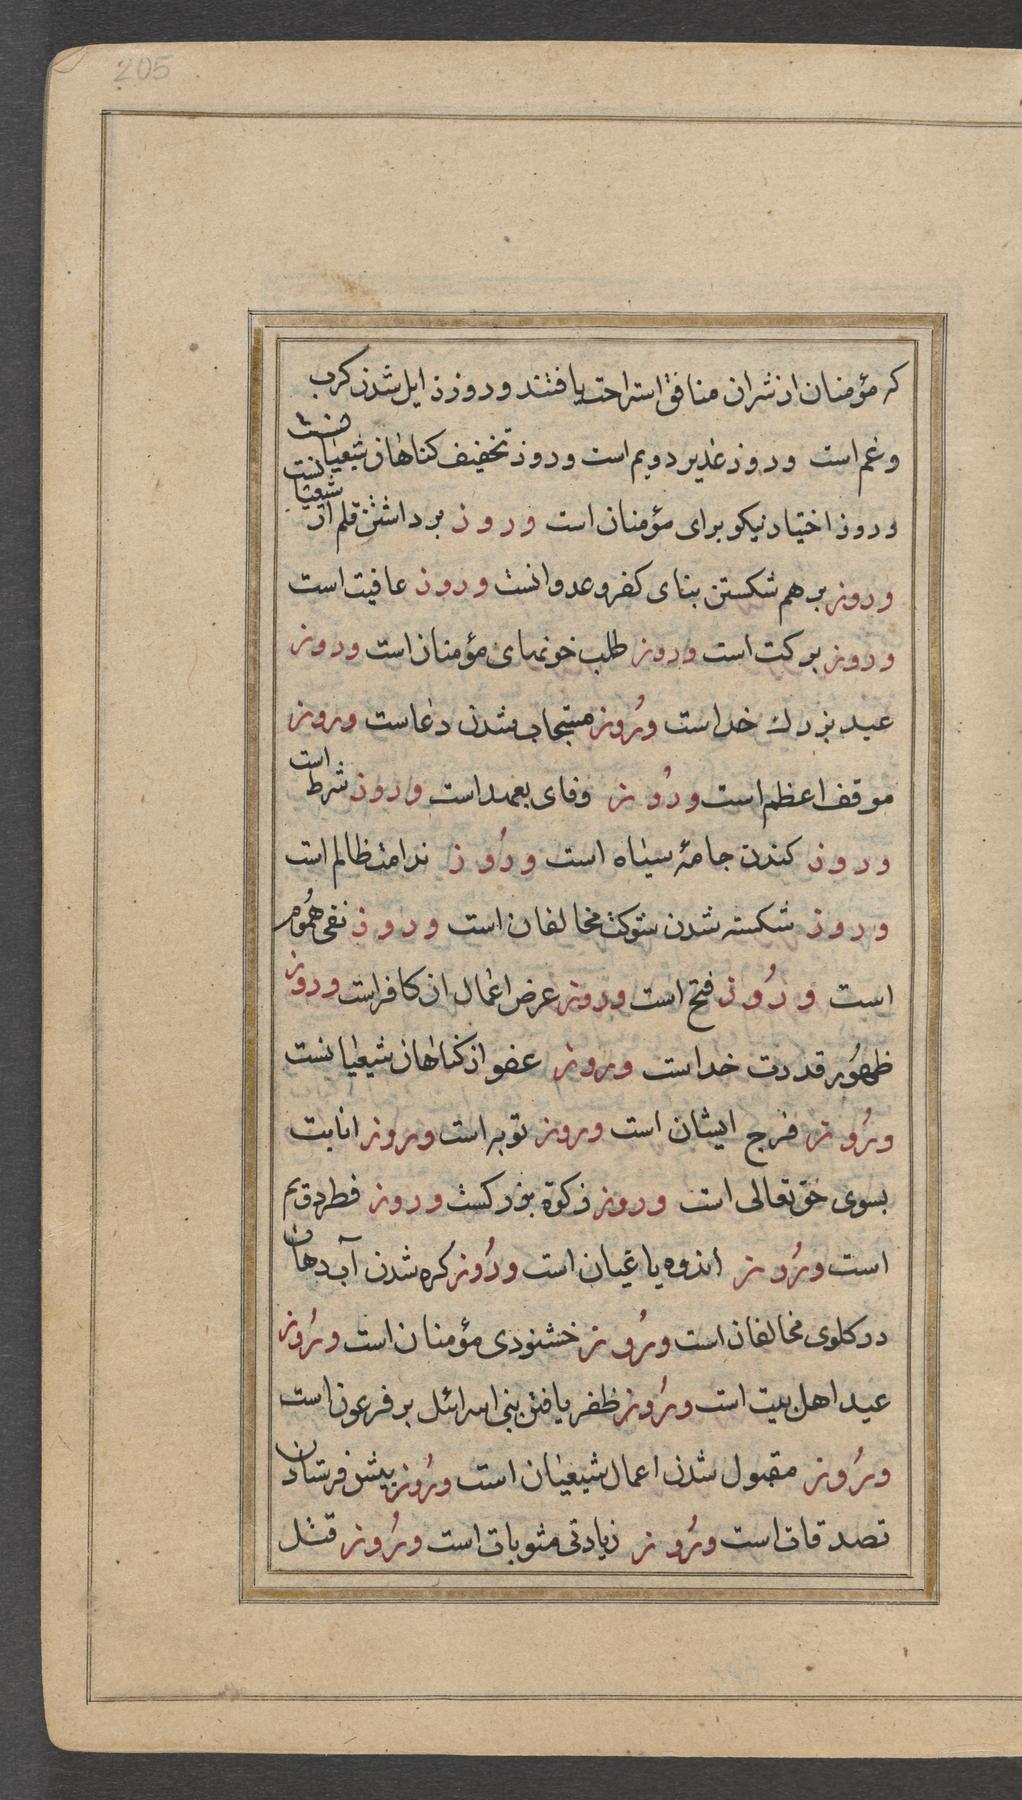 205
که مؤمنان از شر ان منافق استراحت یافتند و روز زایل شدن کرب
و غم است و روز غدیر دویم است و روز تخفیف کناهان شیعیانست
و روز اختیار نیکو برای مؤمنان است و روز برداشتن قلم از شیعیانست
و روز بر هم شکستن بنای کفر و عدوانست و روز عافیت است
و روز برکت است و روز طلب خونهای مؤمنان است و روز
عید بزرك خداست و روز مستجاب شدن دعاست و روز
موقف اعظم است و روز وفای بعهد است و روز شرط است
و روز کندن جامهٔ سیاه است و روز ندامت ظالم است
و روز شکسته شدن شوکت مخالفان است و روز نفی هُموم
است و روز فتح است و روز عرض اعمال ان کافر است و روز
ظهور قدرت خداست و روز عفو از کناهان شیعیانست
و روز فرج ایشان است و روز توبه است و روز انابت
بسوی حق تعالی است و روز زکوة بزرکست و روز فطر دویم
است و روز اندوه یاغیان است و روز کره شدن آب دهان
در کلوی مخالفان است و روز خشنودی مؤمنان است و روز
عید اهل بیت است و روز ظفر یافتن بنی اسرائل بر فرعون است
و روز مقبول شدن اعمال شیعیان است و روز پیش فرستادن
تصدقات است و روز زیادتی مثوبات است و روز قتل